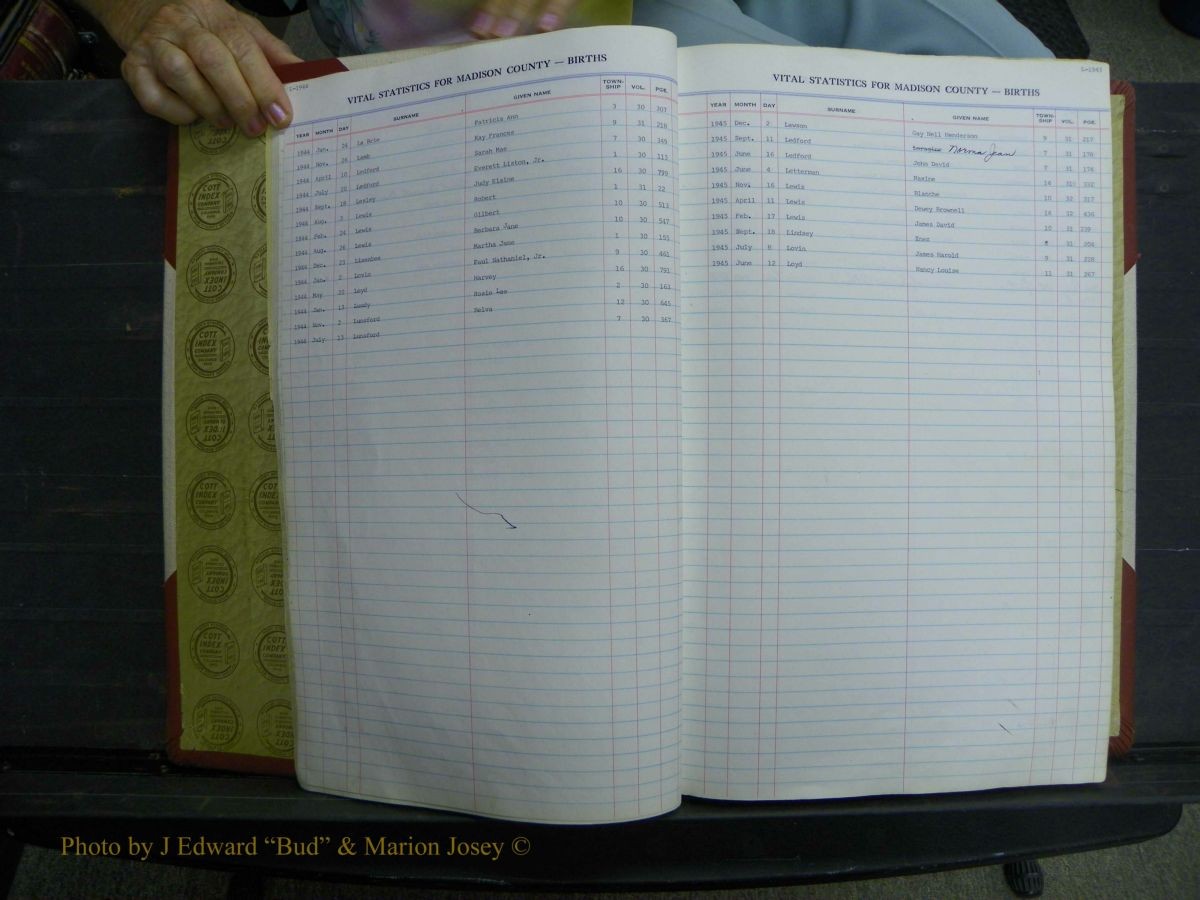 L-1944
VITAL STATISTICS FOR MADISON COUNTY — BIRTHS
YEAR MONTH DAY SURNAME GIVEN NAME TOWN-SHIP VOL. PGE.
1944 Jan. 24 La Brie Patricia Ann 3 30 307
1944 Nov. 26 Lamb Kay Frances 9 31 218
1944 April 10 Ledford Sarah Mae 7 30 349
1944 July 20 Ledford Everett Liston, Jr. 1 30 113
1944 Sept. 18 Lesley Judy Elaine 16 30 799
1944 Aug. 3 Lewis Robert 1 31 22
1944 Feb. 24 Lewis Gilbert 10 30 513
1944 Aug. 26 Lewis Barbara Jane 10 30 547
1944 Dec. 23 Lisenbee Martha June 1 30 155
1944 Jan. 2 Lovin Paul Nathaniel, Jr. 9 30 461
1944 May 22 Loyd Harvey 16 30 791
1944 Jan. 13 Lundy Rosie Lee 2 30 163
1944 Nov. 2 Lunsford Nelva 12 30 645
1944 July 13 Lunsford 7 30 367
L-1945
VITAL STATISTICS FOR MADISON COUNTY — BIRTHS
YEAR MONTH DAY SURNAME GIVEN NAME TOWN-SHIP VOL. PGE.
1945 Dec. 2 Lawson Gay Nell Henderson 9 31 217
1945 Sept. 11 Ledford Norma Jean 7 31 176
1945 June 16 Ledford John David 7 31 174
1945 June 4 Letterman Maxine 14 31 332
1945 Nov. 16 Lewis Blanche 10 32 317
1945 April 11 Lewis Dewey Brownell 16 32 436
1945 Feb. 17 Lewis James David 10 31 239
1945 Sept. 18 Lindsey Inez 31 204
1945 July 8 Lovin James Harold 9 31 228
1945 June 12 Loyd Nancy Louise 11 31 267
COTT INDEX COMPANY
Photo by J Edward “Bud” & Marion Josey ©